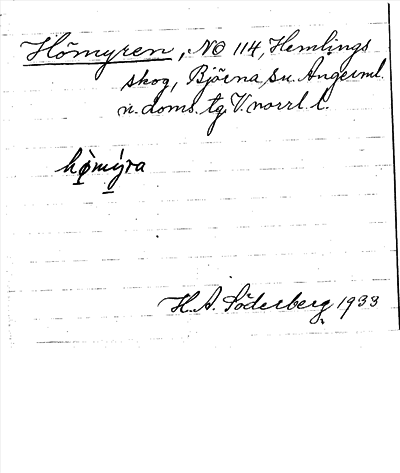 Hömyren, No 114, Hemlings
skog, Björna, sn. Ångerml.
n. doms. tg. V. norrl. l.
hø̀mýra
H. A. Söderberg 1933